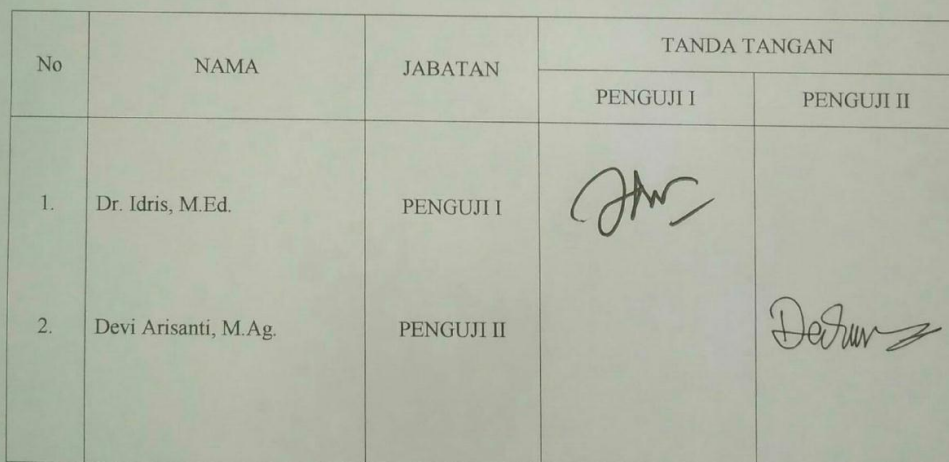 No NAMA JABATAN TANDA TANGAN
PENGUJI I PENGUJI II
1. Dr. Idris, M.Ed. PENGUJI I
2. Devi Arisanti, M.Ag. PENGUJI II